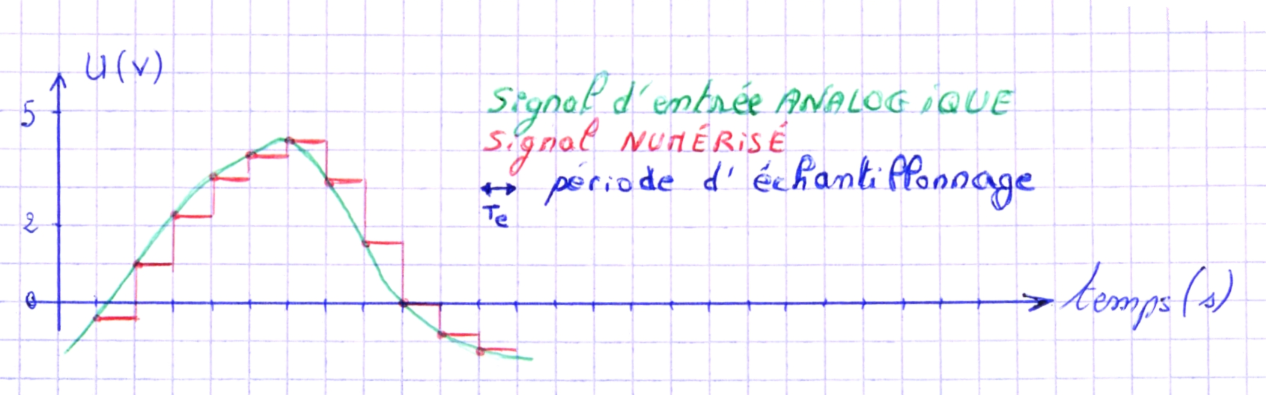 U(v)
5
Signal d'entrée ANALOGiQUE
Signal NUMÉRiSÉ
période d'échantillonnage
Te
2
0
temps(s)